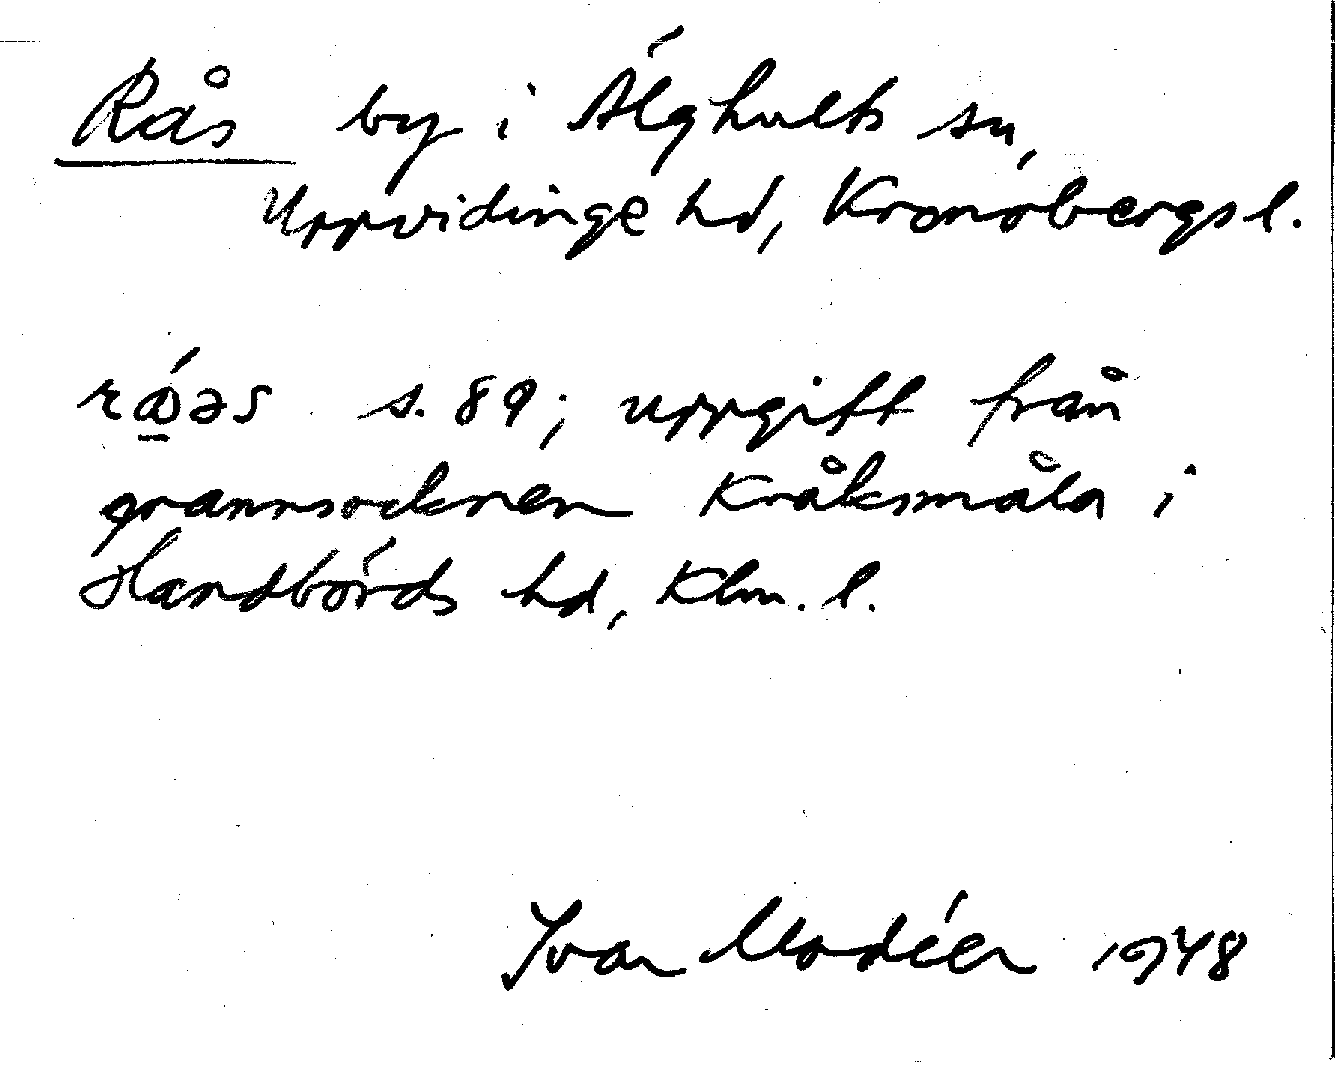 Rås by i Älghults sn,
Uppvidinge hd, Kronobergs l.
s. 89; uppgift från
grannsocknen Kråksmåla i
Handbörds hd, Klm. l.
Ivar Modéer 1948